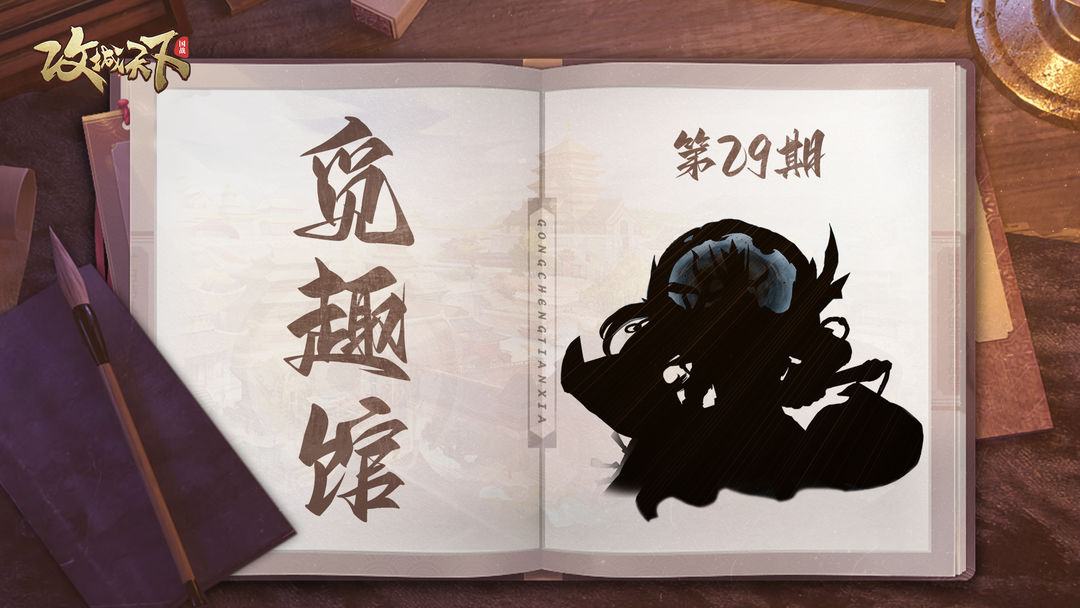 攻城天下
国战
觅趣馆
GONGCHENGTIANXIA
第29期